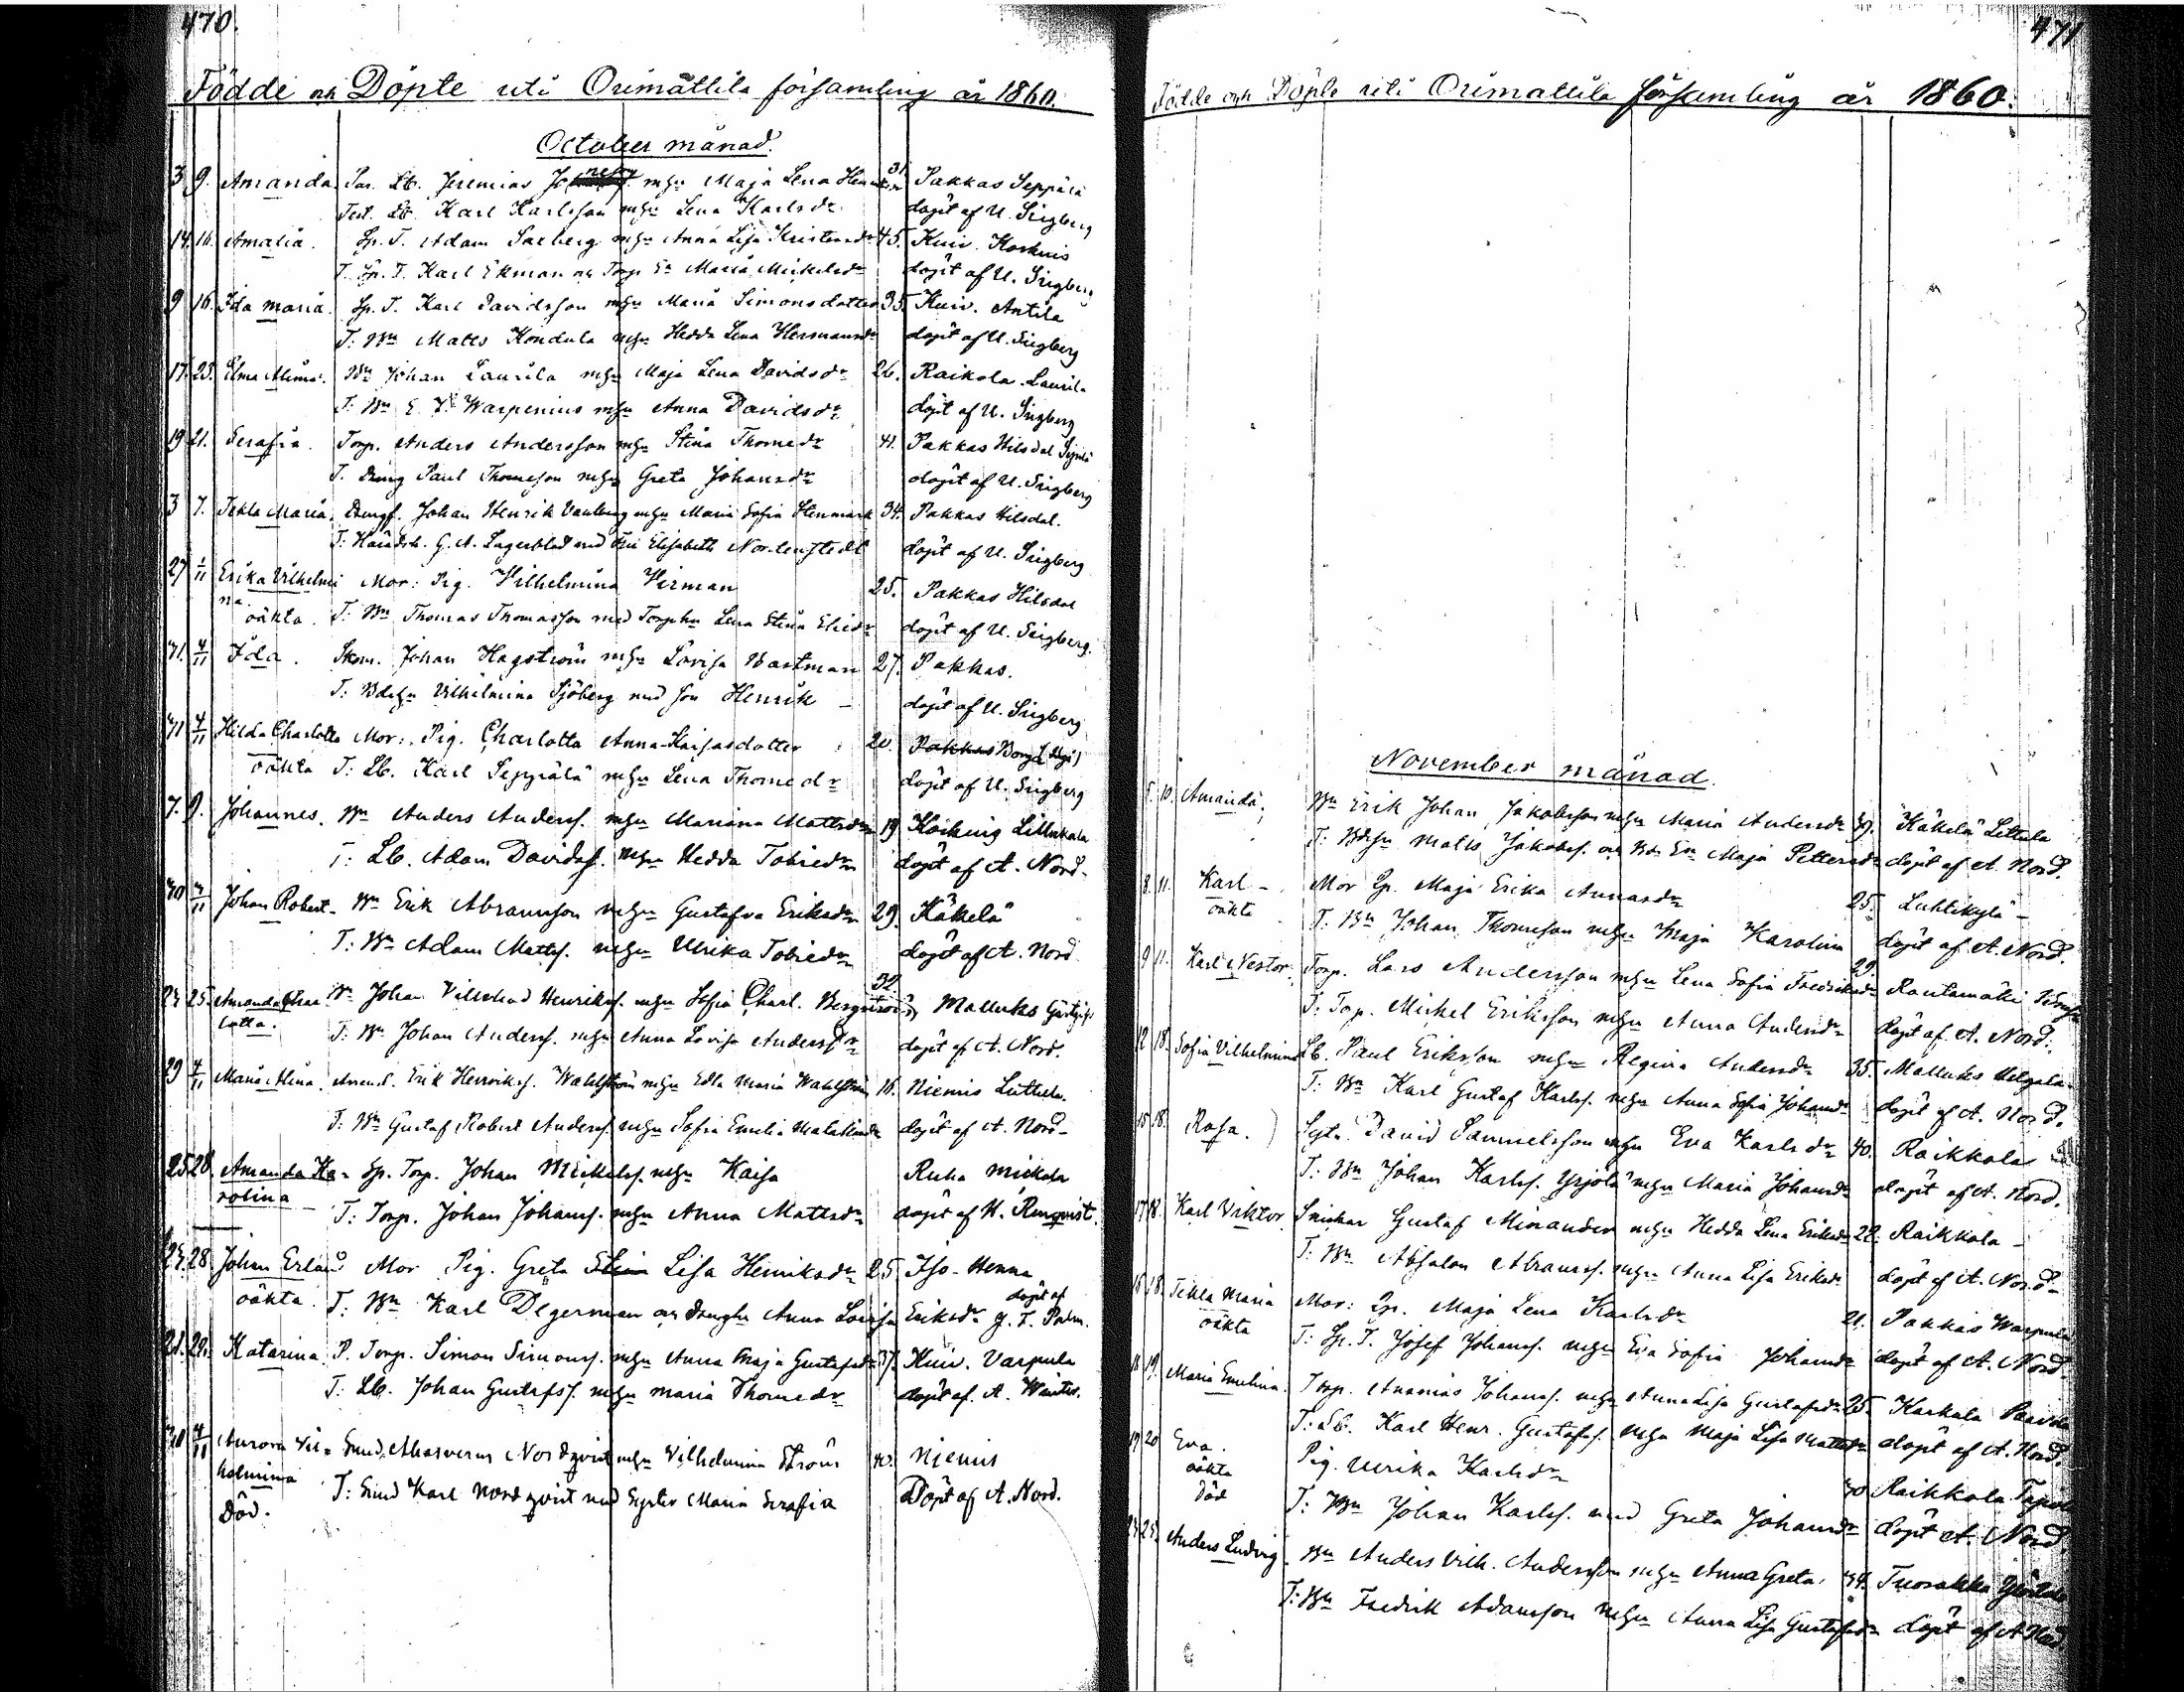 470.
Födde och Döpte uti Orimattila församling år 1860.
October månad.
3 9. Amanda. Lb. Jeremias mhu Maja Lena 31 Pakkas Seppälä
Test. Lb. Karl Karlsson mhu Lena Karlsdr döpt af U. Sirgberg
14. 16. Amalia. Sp. T. Adam Saxberg mhu Anna Lisa 45. Kuiv. Koskuis
T. Sp. T. Karl Ekman och Torp. En Maria Mickelsdr döpt af U. Sirgberg
9 16. Ida Maria. Sp. T. Karl Davidsson mhu Maria Simonsdotter 35. Kuiv. Antila
T. Bn Matts Kondula mhu Hedda Lena Hermansdr döpt af U. Sirgberg
17. 23. Elma Alina. Bn Johan Laurila mhu Maja Lena Davidsdr 26. Raikola Laurila
T: Bn E. Warpenius mhu Anna Davidsdr döpt af U. Sirgberg
19 21. Serafia. Torp. Anders Andersson mhu Stina Thomedr 41. Pakkas Hilsdal
T. Dräng Paul Thomesson mhu Greta Johansdr döpt af U. Sirgberg
3 7. Tekla Maria. Johan Henrik mhu Maria Sofia Stenmark 34. Pakkas Hilsdal.
T: G. A. Lagerblad med Elisabeth döpt af U. Sirgberg
27 1/11 Erika Vilhelmi Mor: Pig. Vilhelmina Virman 25. Pakkas Hilsdal
na oäkta. T. Bn Thomas Thomasson med Lena Stina döpt af U. Sirgberg.
31. 4/11 Ida. Skom. Johan Hagström mhu Lovisa Bastman 27. Pakkas.
T: Vilhelmina Sjöberg med son Henrik – döpt af U. Sirgberg
31 4/11 Hilda Charlotta Mor: Pig. Charlotta Anna Kaisasdotter 20. Pakkas Borgå
oäkta T: Lb. Karl Seppälä mhu Lena Thomedr döpt af U. Sirgberg
7. 9. Johannes. Bn Anders Anderss. mhu Mariana Mattsdr 19 Koiking Lillukala
T: Lb. Adam Davidss. mhu Hedda Tobiedr döpt af A. Nord.
30 4/11 Johan Robert – Bn Erik Abramsson mhu Gustafva Eriksdr 29. Käkelä
T: Bn Adam Mattss. mhu Ulrika Tobiedr döpt af A. Nord
25. Amanda Char Johan Henrikss. mhu Sofia Charl. Bergström 32. Mallusks
lotta. T: Bn Johan Anderss. mhu Anna Lovisa Andersdr döpt af A. Nord.
29 4/11 Maria Alina. Arend. Erik Henrikss. Wahlström mhu Edla Maria Wahlström 16. Niemis Luttula.
T: Bn Gustaf Robert Anderss. mhu Sofia Emelia döpt af A. Nord –
25 28. Amanda Ka- Sp. Torp. Johan Mickelss. mhu Kaisa Ruha Mickola
rolina T: Torp. Johan Johanss. mhu Anna Mattsdr döpt af H. Renqvist.
25. 28 Johan Erland Mor Pig. Greta Lisa Henriksdr 25. Iso-Henna
oäkta. T: Bn Karl Degerman och Anna Lovisa Eriksdr döpt af J. F. Palm.
28. 29. Katarina. P. Torp. Simon Simonss. mhu Anna Maja Gustafsdr 37. Kuiv. Varpula
T: Lb. Johan Gustafss. mhu Maria Thomedr döpt af A. Winter.
30 4/11 Aurora Vil- Smed. Ahasverus Nordqvist mhu Vilhelmina Ström 40. Niemis
helmina T: Smed Karl Nordqvist med Syster Maria Serafia Döpt af A. Nord.
Död.
471
Födde och Döpte uti Orimattila församling år 1860.
November månad.
5. 10. Amanda. Bn Erik Johan Jakobsson mhu Maria Andersdr 39. Käkelä Lettula
T: Matts Jakobss. och Bd. En Maja Pettersdr döpt af A. Nord.
8. 11. Karl – Mor Maja Erika Annasdr 25. Luhtikylä –
oäkta T: Bn Johan Thomesson mhu Maja Karolina döpt af A. Nord.
9 11. Karl Nestor. Torp. Lars Andersson mhu Lena Sofia Fredriksdr 29. Rautamäki
T: Torp. Mickel Eriksson mhu Anna Andersdr döpt af A. Nord.
12 18. Sofia Vilhelmina Lb. Paul Eriksson mhu Regina Andersdr 35. Mallusks
T: Bn Karl Gustaf Karlss. mhu Anna Sofia Johansdr döpt af A. Nord.
15 18. Rosa. David Samuelsson mhu Eva Karlsdr 40. Raikkola
T: Bn Johan Karlss. Yrjölä mhu Maria Johansdr döpt af A. Nord.
17 18. Karl Viktor. Snickar Gustaf Minander mhu Hedda Lena Eriksdr 22. Raikkola –
T: Bn Absalon Abramss. mhu Anna Lisa Eriksdr döpt af A. Nord –
16 18. Tekla Maria Mor: Maja Lena Karlsdr 21. Pakkas Warpula
oäkta T: Sp. T. Josef Johanss. mhu Eva Sofia Johansdr döpt af A. Nord.
18 19. Maria Emelina. Torp. Ananias Johanss. mhu Anna Lisa Gustafsdr 25. Karkala Paavola
T: Lb. Karl Henr. Gustafss. mhu Maja Lisa Mattsdr döpt af A. Nord.
19 20 Eva. Pig. Ulrika Karlsdr 30 Raikkola
oäkta
död T: Bn Johan Karlss. med Greta Johansdr döpt A. Nord.
25. Anders Ludvig. Bn Anders Vilh. Andersson mhu Anna Greta 34. Tuorakka
T: Bn Fredrik Adamsson mhu Anna Lisa Gustafsdr döpt af A Nord.